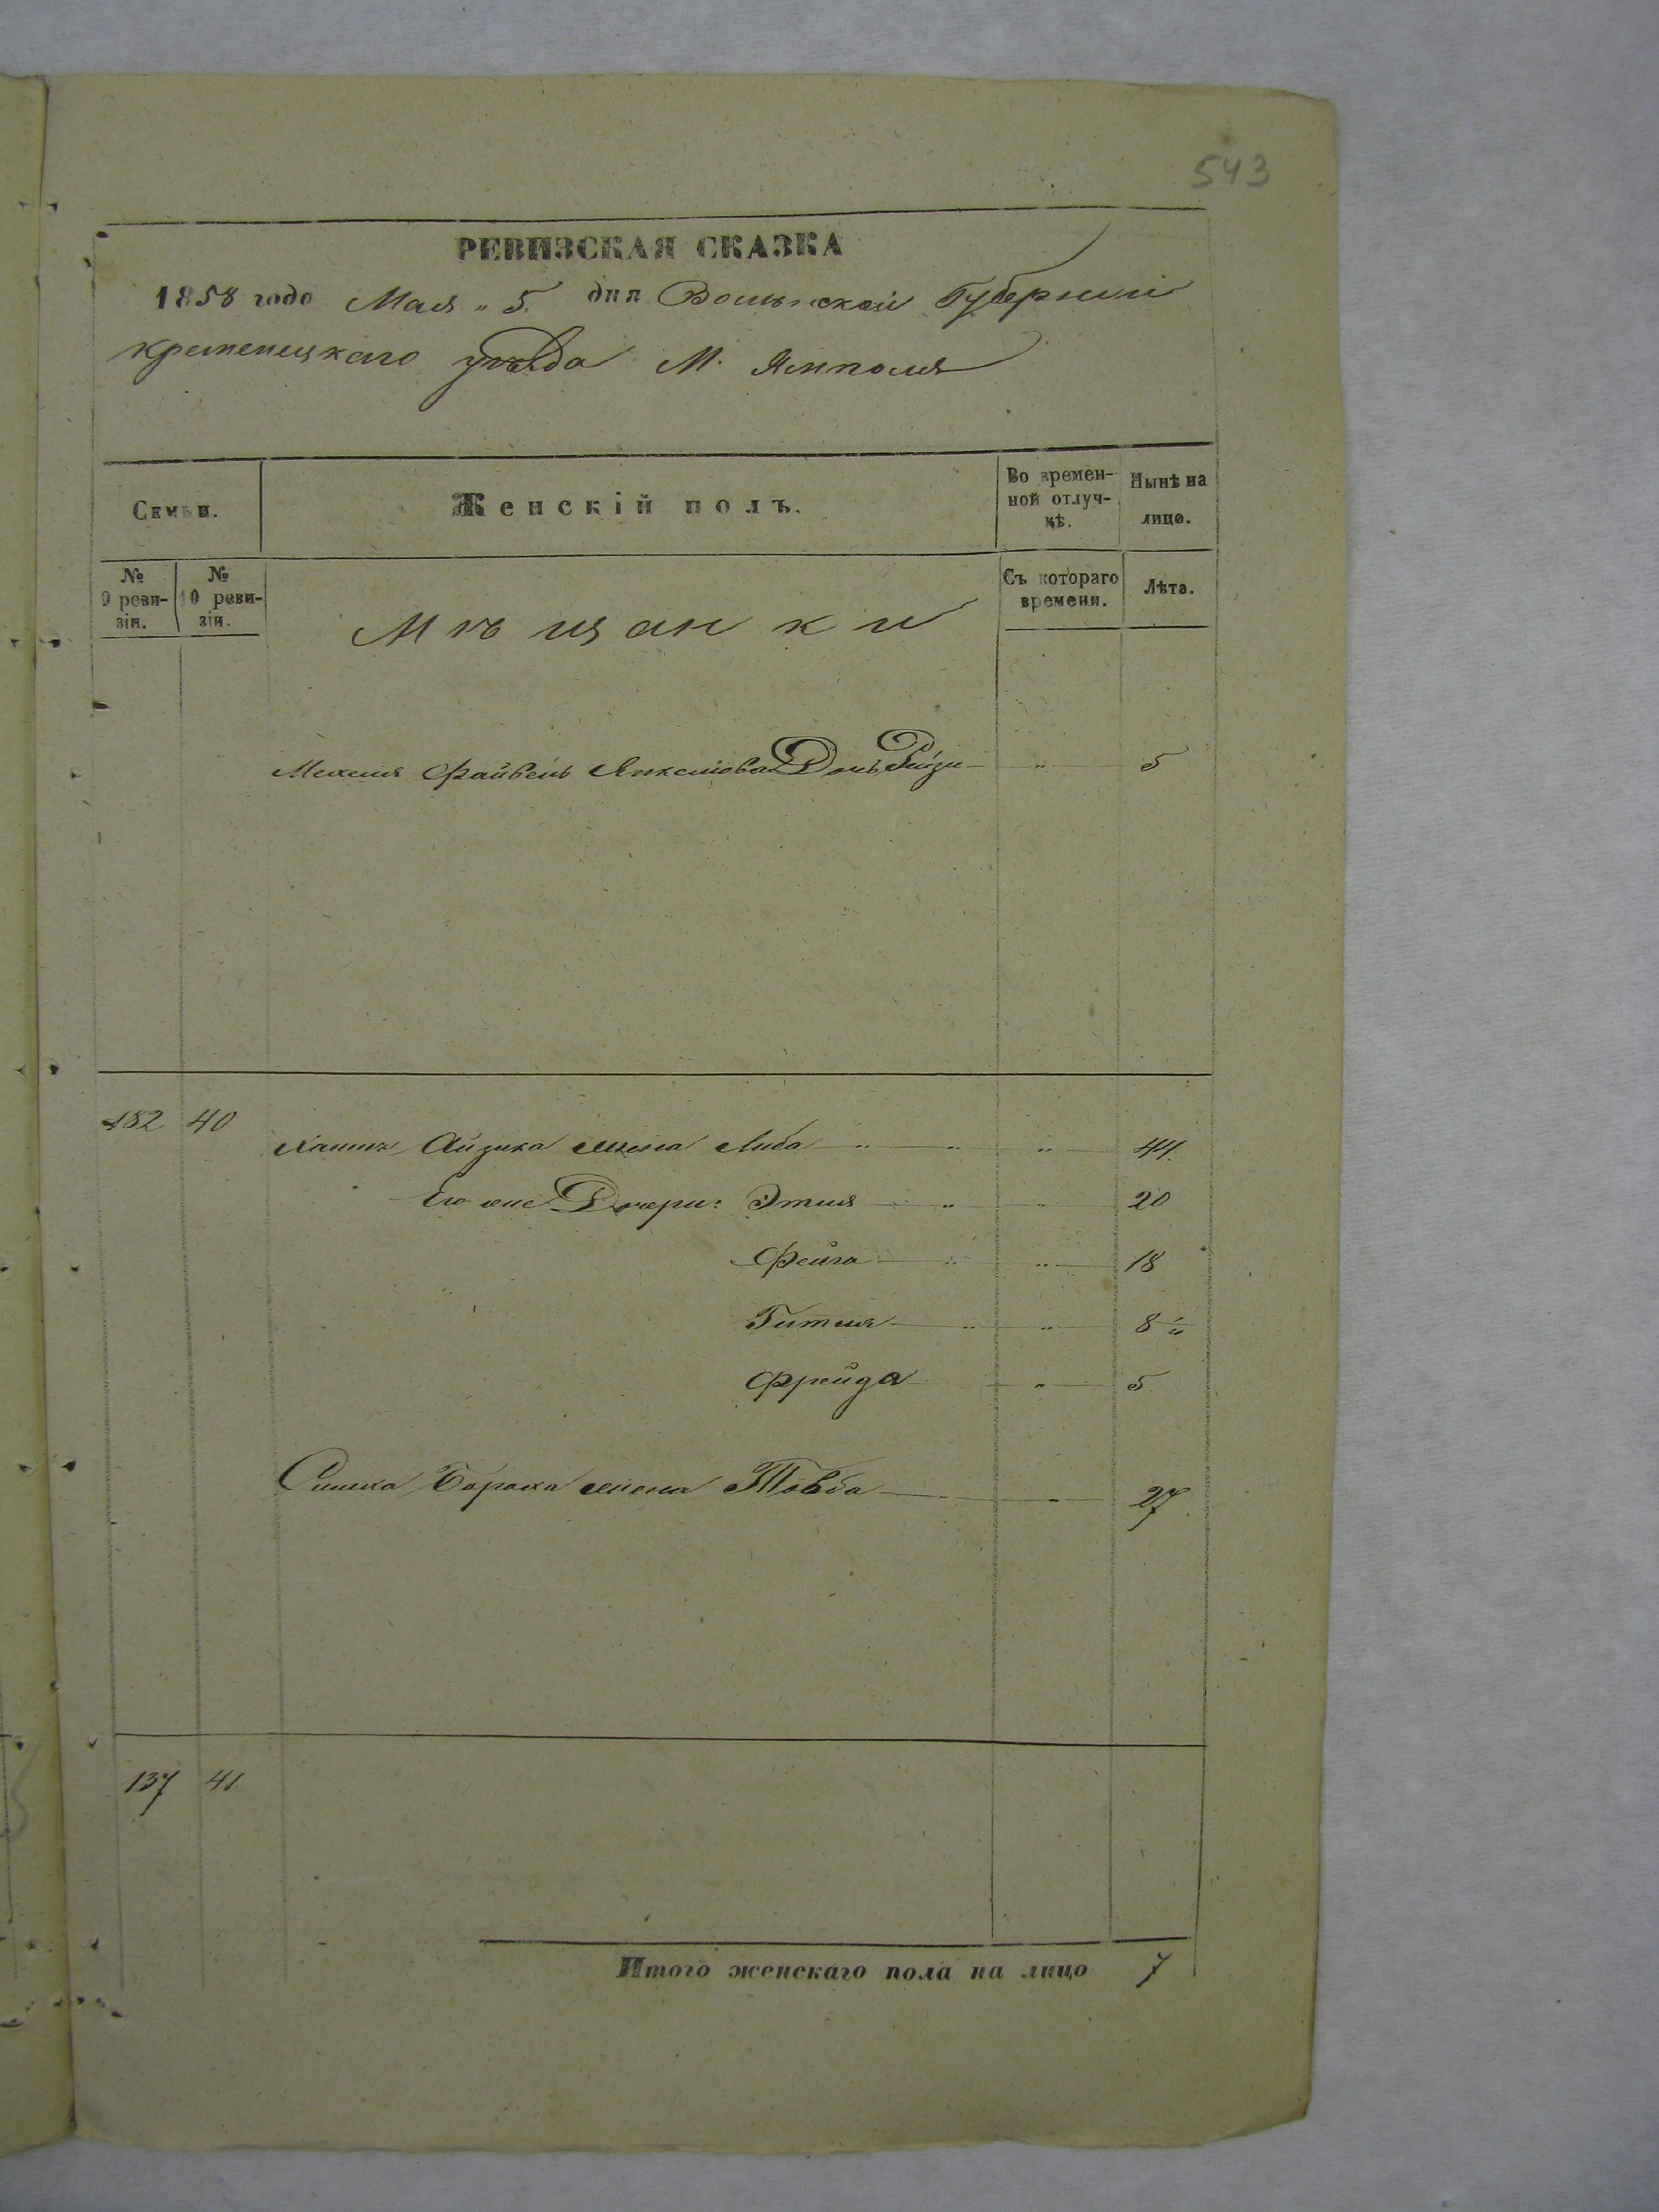 543
РЕВИЗСКАЯ СКАЗКА
1858 года Мая „ 5. дня Волынской Губернии
Кременецкаго уѣзда М. Ямполя
Семьи.
Женскій полъ.
Во времен-
ной отлуч-
кѣ.
Нынѣ на
лицо.
№
9 реви-
зіи.
№
10 реви-
зіи.
Мѣщанки
Съ котораго
времени.
Лѣта.
Файвель Янкелева Дочь Рейзи „ 5
182 40
Айзика жена Либа „ „ „ 44.
Его же Дочери: Этля „ „ 20
Фейга „ „ 18
Гитля „ „ 8
Фрейда „ 5
Борока жена Товба „ 27
137 41
Итого женскаго пола на лицо 7